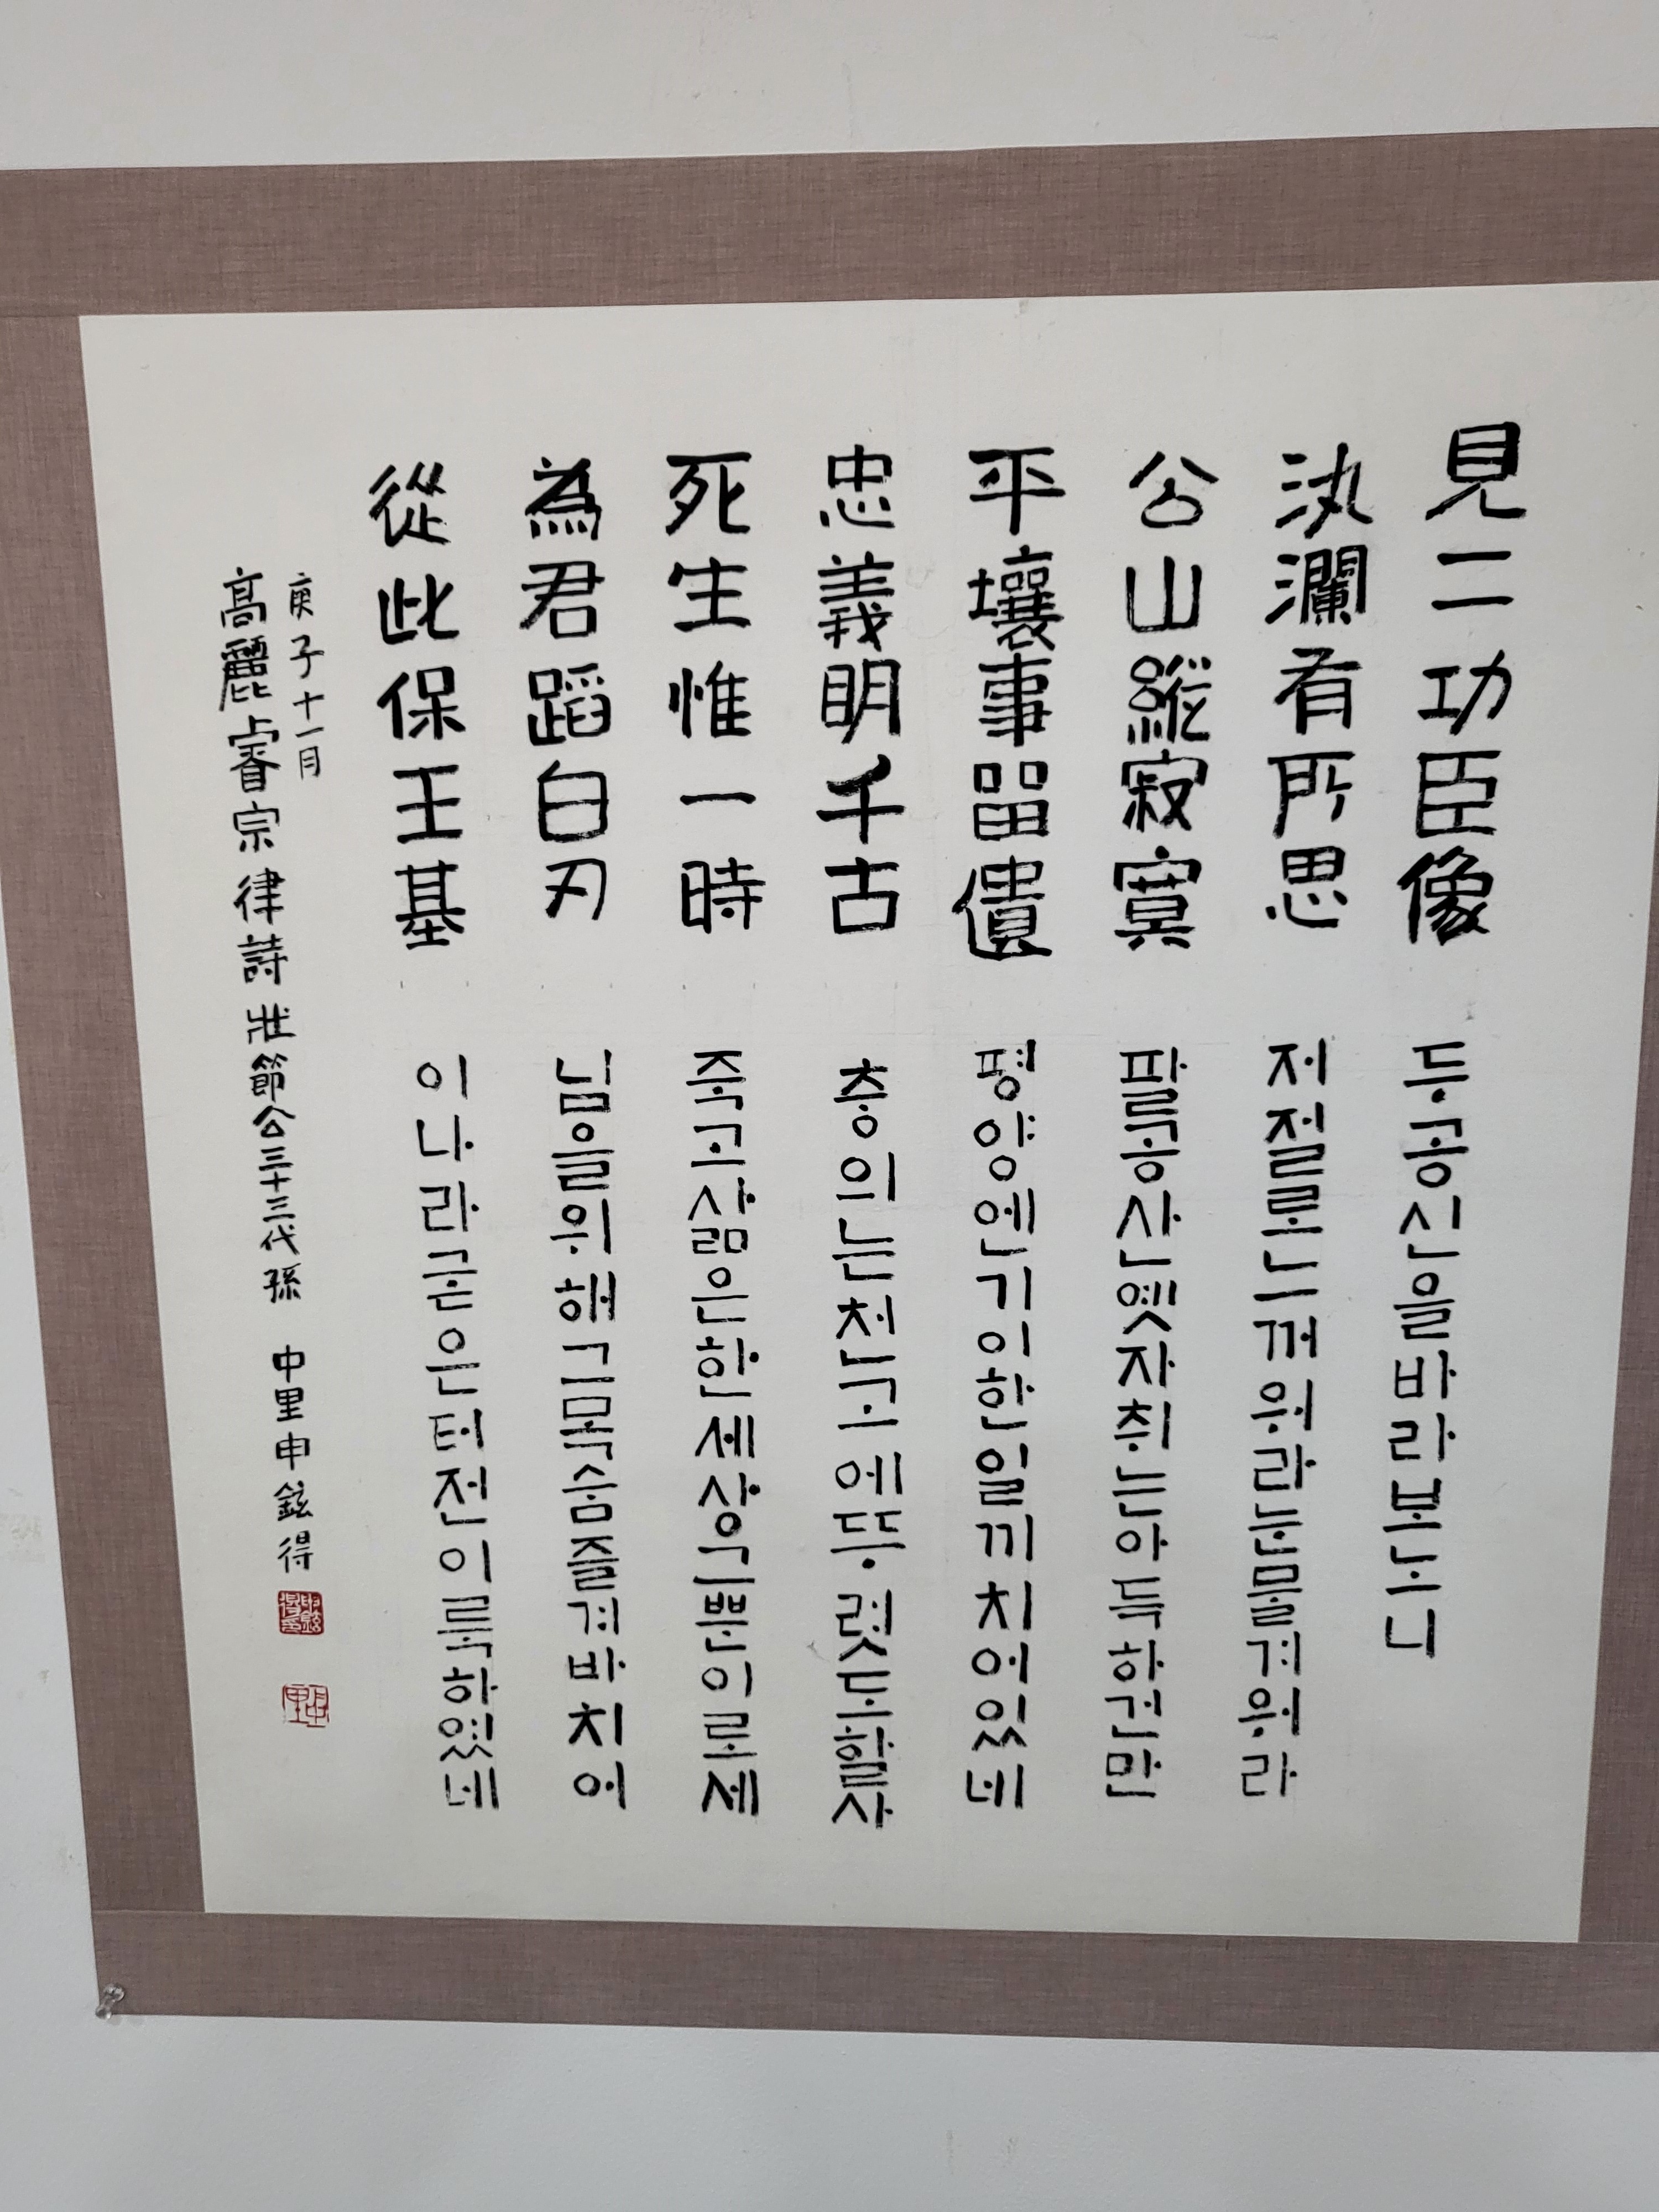 見二功臣像 두공신을바라보노니
汍瀾有所思 저절로느꺼워라눈물겨워라
公山縱寂寞 팔공산옛자취는아득하건만
平壤事㽞遺 평양엔기이한일끼치어있네
忠義明千古 충의는천고에뚜렷도할사
死生惟一時 죽고삶은한세상그뿐이로세
為君蹈白刃 님을위해그목숨즐겨바치어
從此保王基 이나라굳은터전이룩하였네
庚子十一月
高麗睿宗律詩 壯節公三十三代孫 中里申鉉得